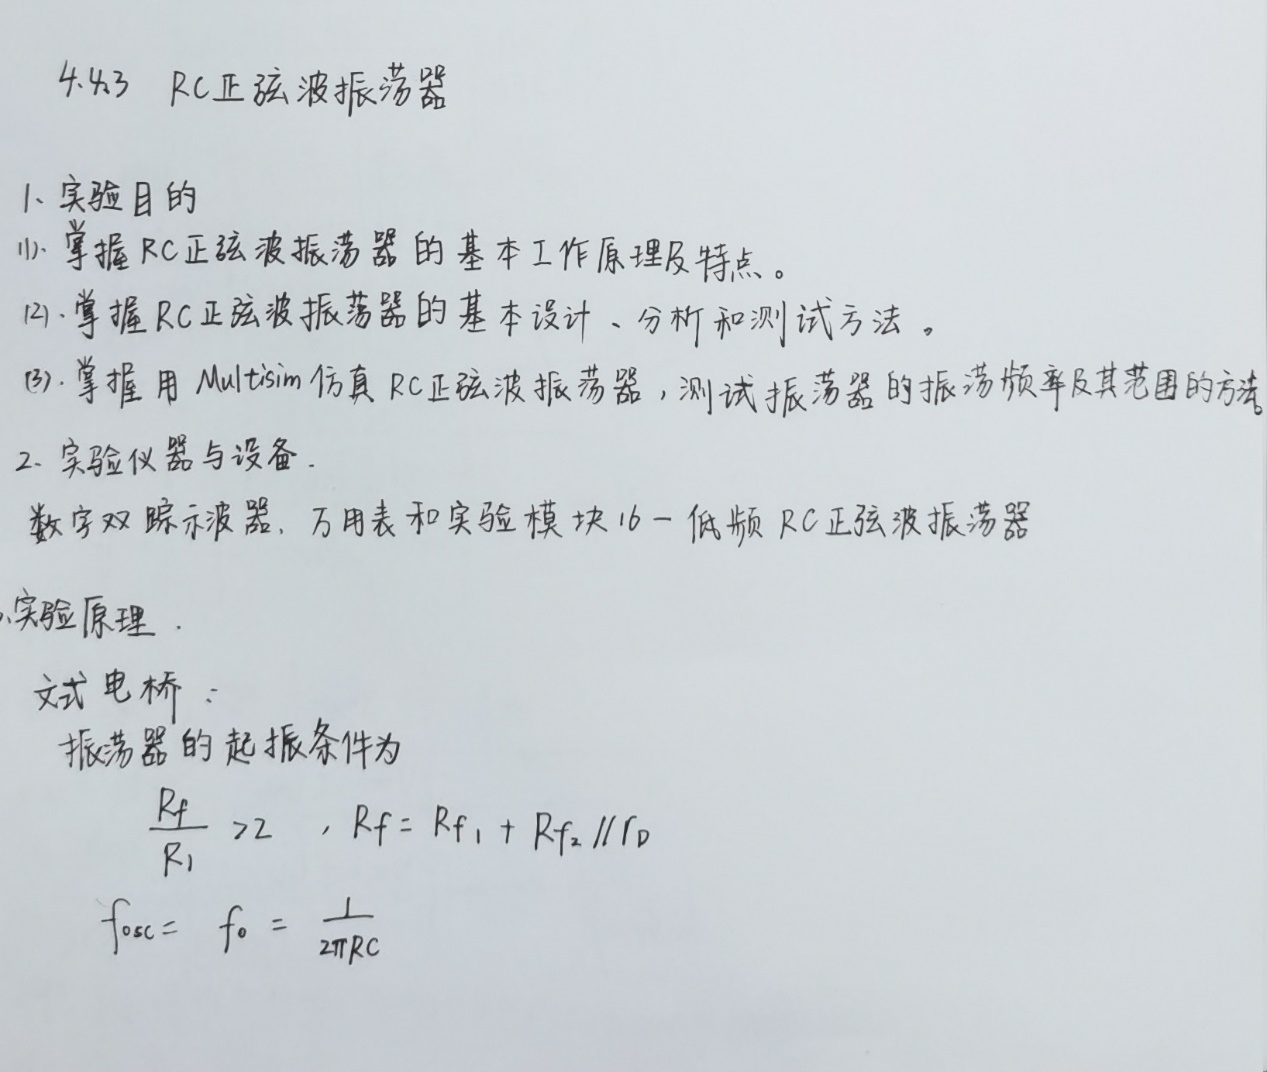 4.4.3 RC正弦波振荡器
1、实验目的
(1).掌握RC正弦波振荡器的基本工作原理及特点。
(2).掌握RC正弦波振荡器的基本设计、分析和测试方法。
(3).掌握用Multisim仿真RC正弦波振荡器,测试振荡器的振荡频率及其范围的方法。
2、实验仪器与设备.
数字双踪示波器、万用表和实验模块16-低频RC正弦波振荡器
、实验原理.
文式电桥:
振荡器的起振条件为
Rf/R1 >2 , Rf = Rf1 + Rf2 // rD
fosc = f0 = 1/2πRC